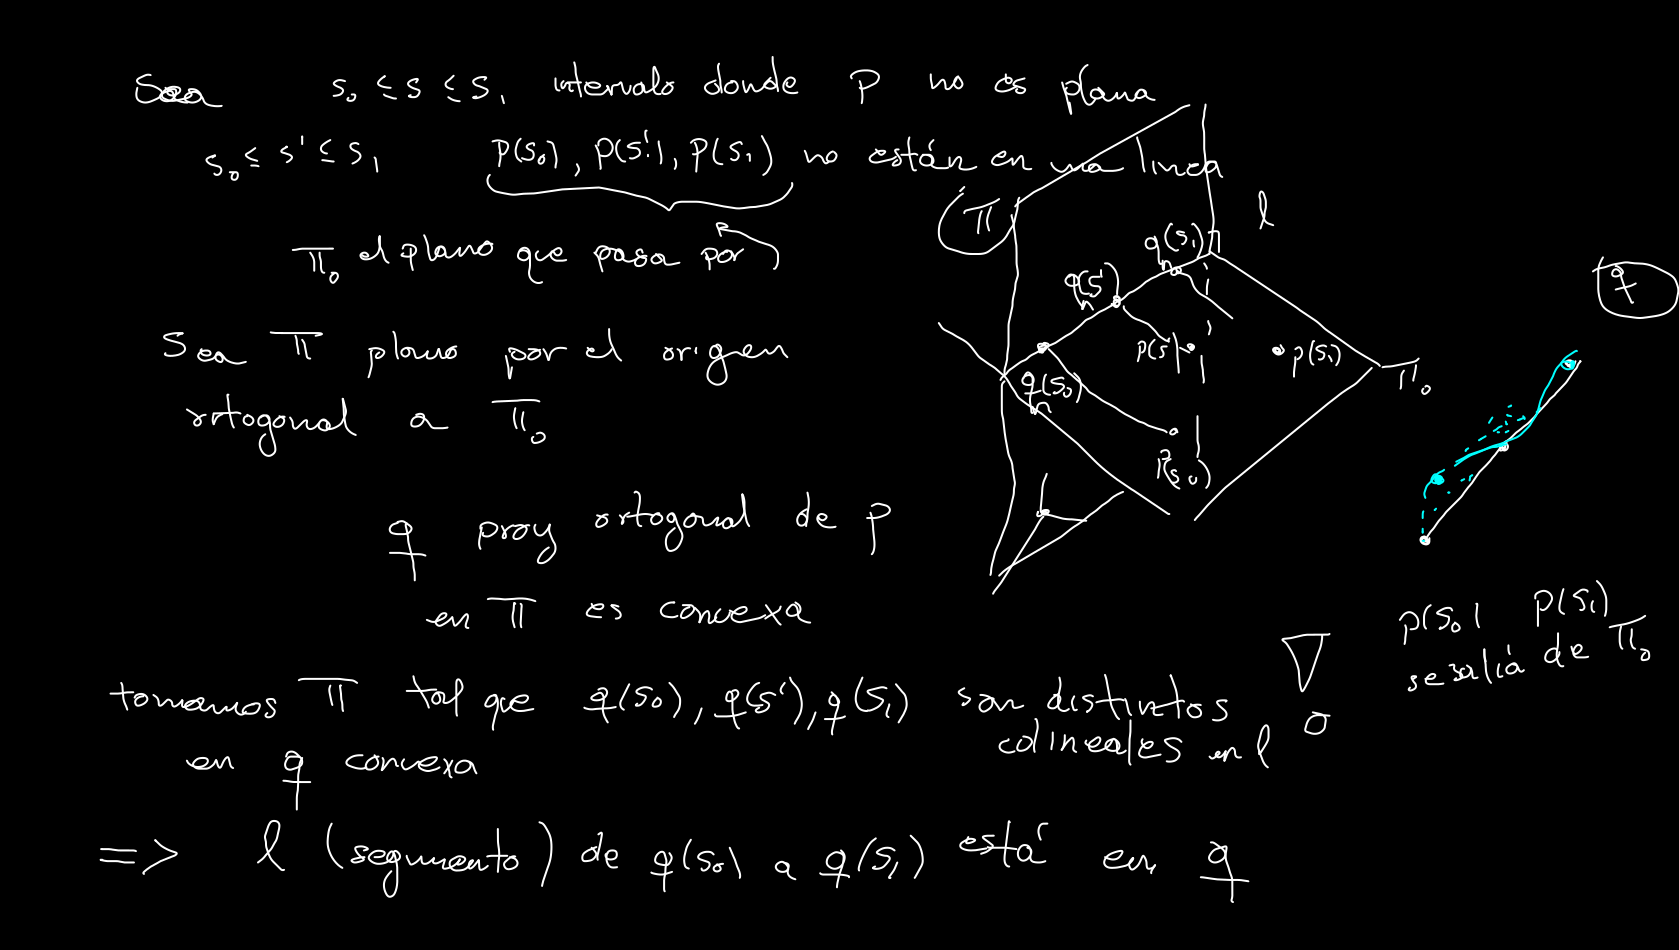 Sea s₀ ≤ s ≤ s₁ intervalo donde p no es plana
s₀ ≤ s' ≤ s₁ p(s₀), p(s'), p(s₁) no están en una linea
π₀ el plano que pasa por
Sea π plano por el origen
ortogonal a π₀
q proy ortogonal de p
en π es convexa
tomamos π tal que q(s₀), q(s'), q(s₁) son distintos
colineales en l
en q convexa
=> l (segmento) de q(s₀) a q(s₁) está en q
π
l
q(s₁)
q(s')
q(s₀)
p(s')
p(s₁)
p(s₀)
π₀
q
p(s₀) p(s₁)
se salía de π₀